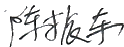 陈振东